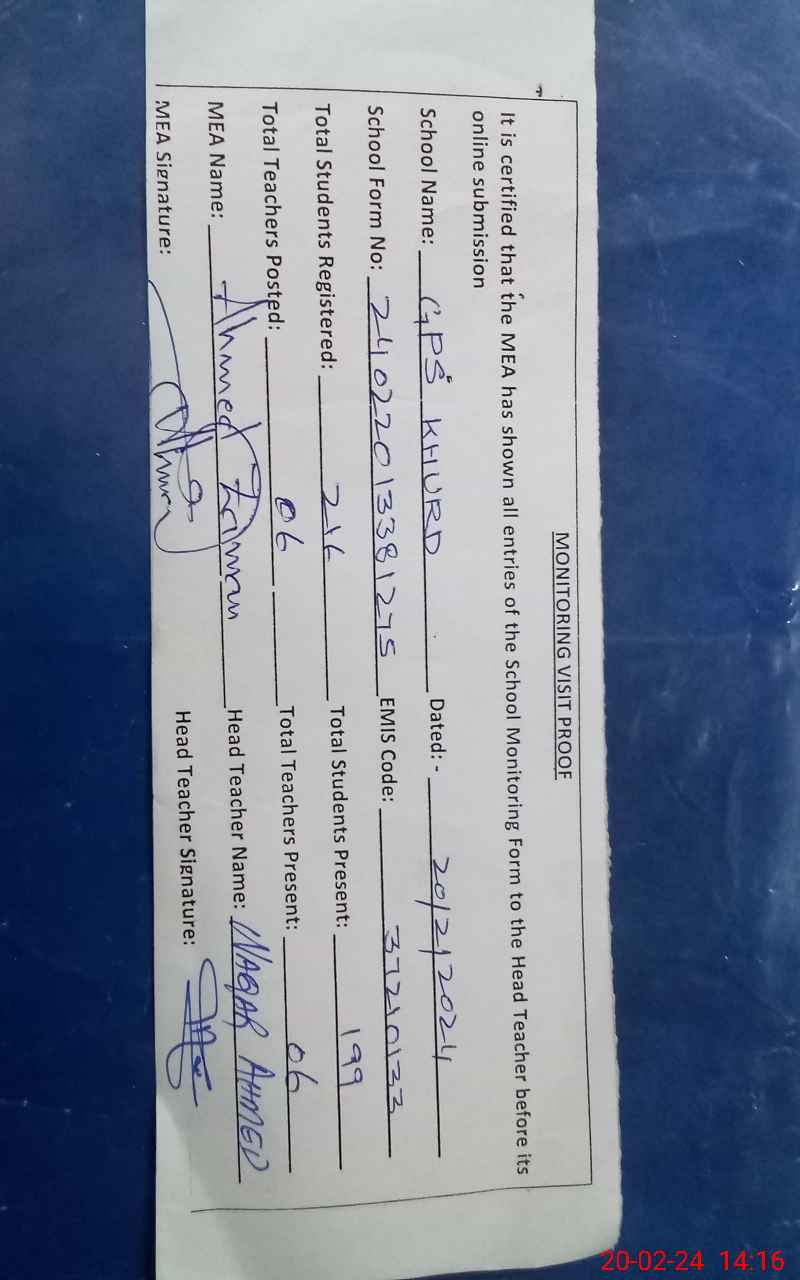 MONITORING VISIT PROOF
It is certified that the MEA has shown all entries of the School Monitoring Form to the Head Teacher before its
online submission
School Name: GPS KHURD Dated: - 20/2/2024
School Form No: 24022013381275 EMIS Code: 37210133
Total Students Registered: 216 Total Students Present: 199
Total Teachers Posted: 06 Total Teachers Present: 06
MEA Name: Ahmed Zaman Head Teacher Name: WAQAR AHMED
MEA Signature: Head Teacher Signature:
20-02-24 14:16